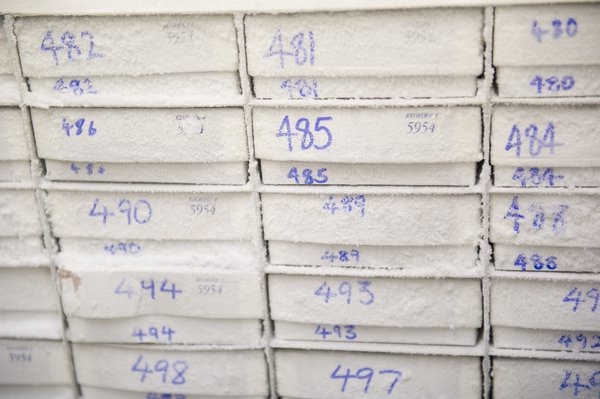 482 5954
482
481 5954
481
480
480
486 5954
486
485 REORDER # 5954
485
484
484
490 5954
490
489
489
488
488
494 5954
494
493
493
492
498
497